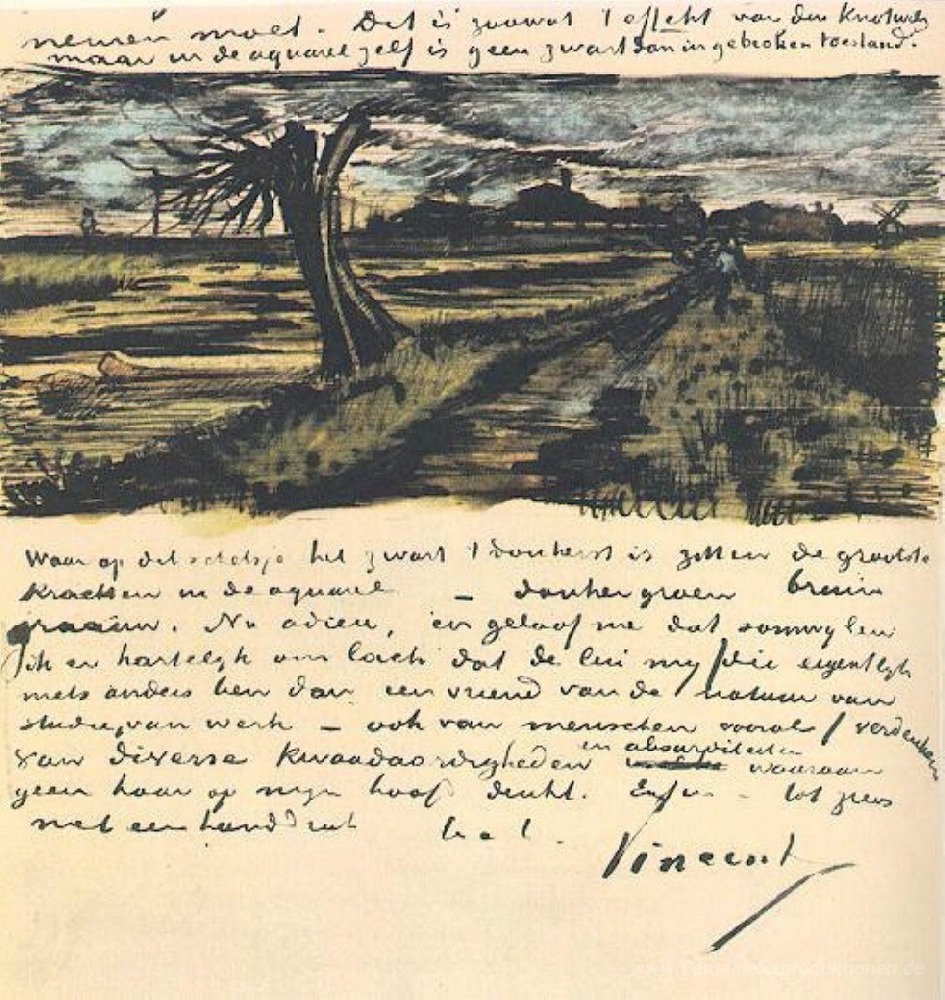 nemen moet. Dit is zoowat 't effekt van den Knotwilg
maar in de aquarel zelf is geen zwart dan in gebroken toestand.
Waar op dit schetsje het zwart 't donkerst is zitten de grootste
krachten in de aquarel – donkergroen bruin
graauw. Nu adieu, en geloof me dat somwijlen
ik er hartelijk om lach dat de lui mij /die eigentlijk
niets anders ben dan een vriend van de natuur van
studie, van werk – ook van menschen vooral/ verdenken
van diverse kwaadaardigheden en absurditeiten waaraan
geen haar op mijn hoofd denkt. Enfin – tot ziens
met een handdruk t. à t.
Vincent